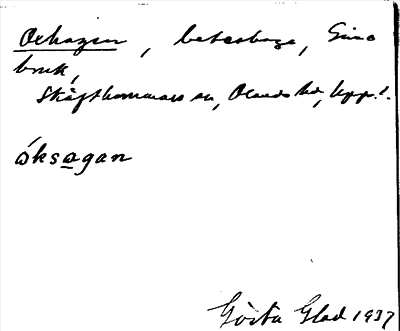 Oxhagen, beteshage, Gimo
bruk,
Skäfthammars sn, Olands hd, Uppl.
ò́ksa̲gan
Gösta Glad 1937